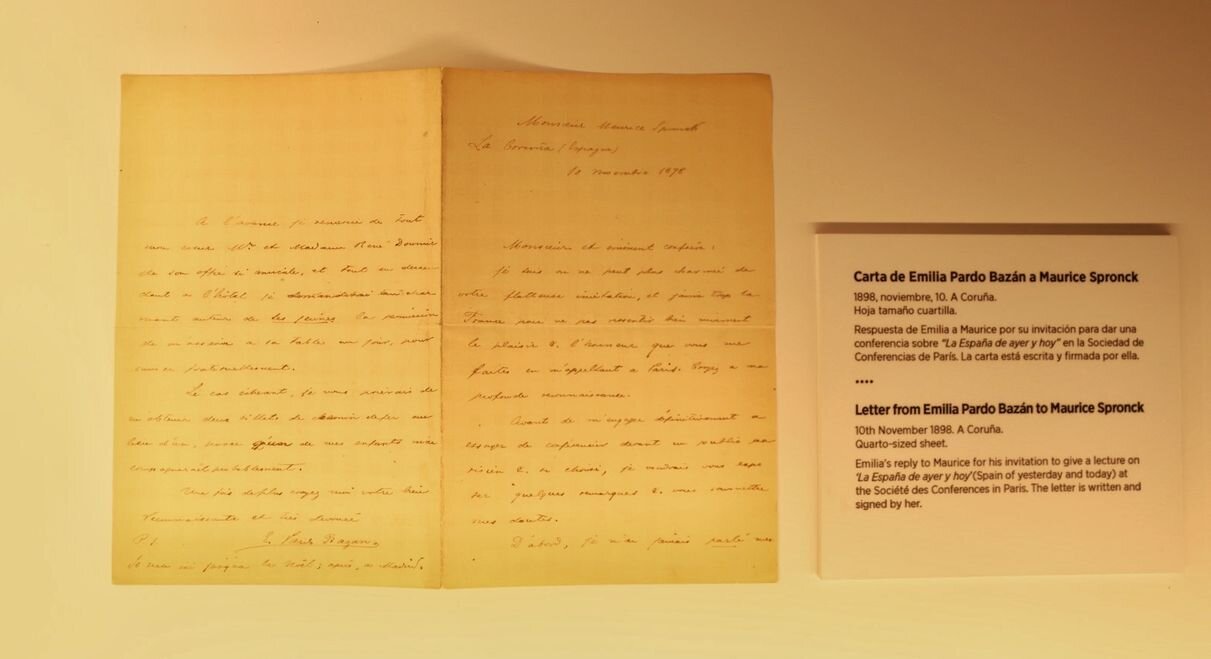 A l'avance je remercie de tout
mon cœur Mr et Madame René Doumic
de son offre si amicale, et tout en descen
dant a l'hôtel je demanderai au char
mant auteur de les jeunes la permission
de m'asseoir a sa table un jour, pour
fraternellement.
Le cas échéant, je vous prierais de
m'obtenir deux billets de chemin de fer au
lieu d'un, parce qu'un de mes enfants m'ac
compagnerait probablement.
Une fois de plus croyez moi votre bien
reconnaissante et très dévouée
P.S. E. Pardo Bazan
Je suis ici jusqu'a la Noël; après, a Madrid.
Monsieur Maurice Spronck
La Coruña (Espagne)
10 novembre 1898
Monsieur et éminent confrère:
Je suis on ne peut plus charmée de
votre flatteuse invitation, et j'aime trop la
France pour ne pas ressentir bien vivement
le plaisir & l'honneur que vous me
faites en m'appellant a Paris. Croyez a ma
profonde reconnaissance.
Avant de m'engager définitivement a
essayer de conférencier devant un public pa
risien & si choisi, je voudrais vous expo
ser quelques remarques & vous soumettre
mes doutes.
D'abord, je n'ai jamais parlé
Carta de Emilia Pardo Bazán a Maurice Spronck
1898, noviembre, 10. A Coruña.
Hoja tamaño cuartilla.
Respuesta de Emilia a Maurice por su invitación para dar una
conferencia sobre "La España de ayer y hoy" en la Sociedad de
Conferencias de París. La carta está escrita y firmada por ella.
••••
Letter from Emilia Pardo Bazán to Maurice Spronck
10th November 1898. A Coruña.
Quarto-sized sheet.
Emilia's reply to Maurice for his invitation to give a lecture on
'La España de ayer y hoy'(Spain of yesterday and today) at
the Société des Conferences in Paris. The letter is written and
signed by her.